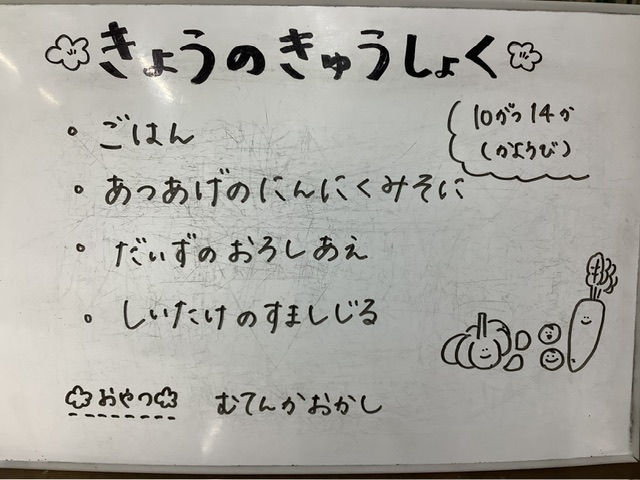 きょうのきゅうしょく
10がつ14か
(かようび)
・ごはん
・あつあげのにんにくみそに
・だいずのおろしあえ
・しいたけのすましじる
おやつ むてんかおかし